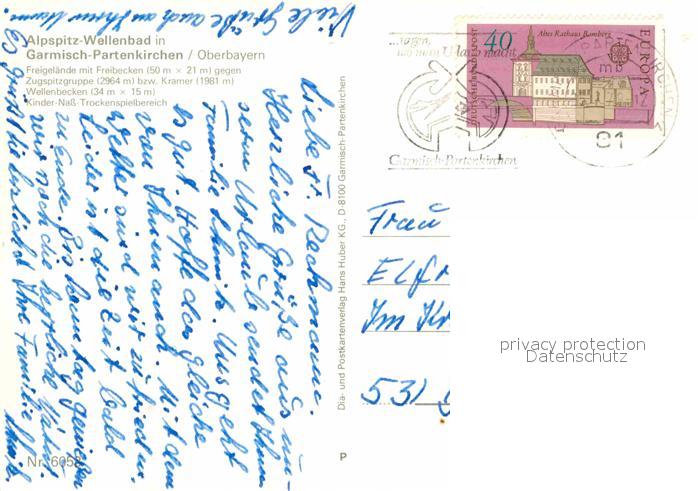 Alpspitz-Wellenbad in
Garmisch-Partenkirchen / Oberbayern
Freigelände mit Freibecken (50 m × 21 m) gegen
Zugspitzgruppe (2964 m) bzw. Kramer (1981 m)
Wellenbecken (34 m × 15 m)
Kinder-Naß-Trockenspielbereich
Liebe Fr. Rechmann.
Herzliche Grüße aus un-
serm Urlaub sendet Ihnen
Familie Schmitz. Uns geht
es gut. Hoffe das gleiche
von Ihnen auch. Mit dem
Wetter sind wir zufrieden.
Leider ist die Zeit bald
zu Ende. Bis Sonntag genießen
wir noch die herrliche
Es grüßt Sie herzlichst Ihre Familie
Viele Grüße auch an Ihren Mann.
Nr. 6052
Dia- und Postkartenverlag Hans Huber KG., D-8100 Garmisch-Partenkirchen
P
wo man Urlaub macht
Garmisch-Partenkirchen
DEUTSCHE BUNDESPOST
40
Altes Rathaus Bamberg
EUROPA
81
Frau
Elfr
Im Kr
53)
privacy protection
Datenschutz